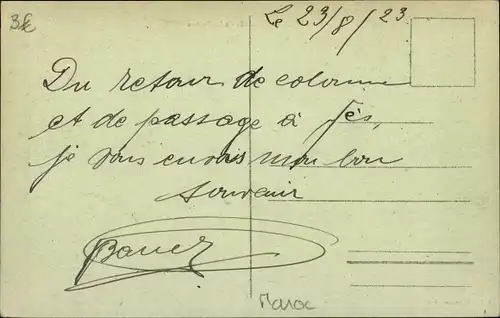 3€
Le 23/8/23
Du retour de colonne
et de passage à Fès,
je vous envois mon bon
souvenir
Maroc